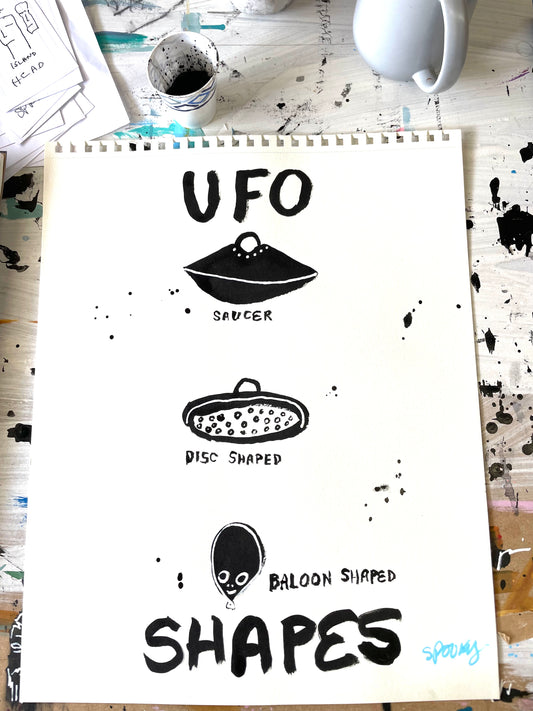 ISLAND
HEAD
UFO
SAUCER
DISC SHAPED
BALOON SHAPED
SHAPES